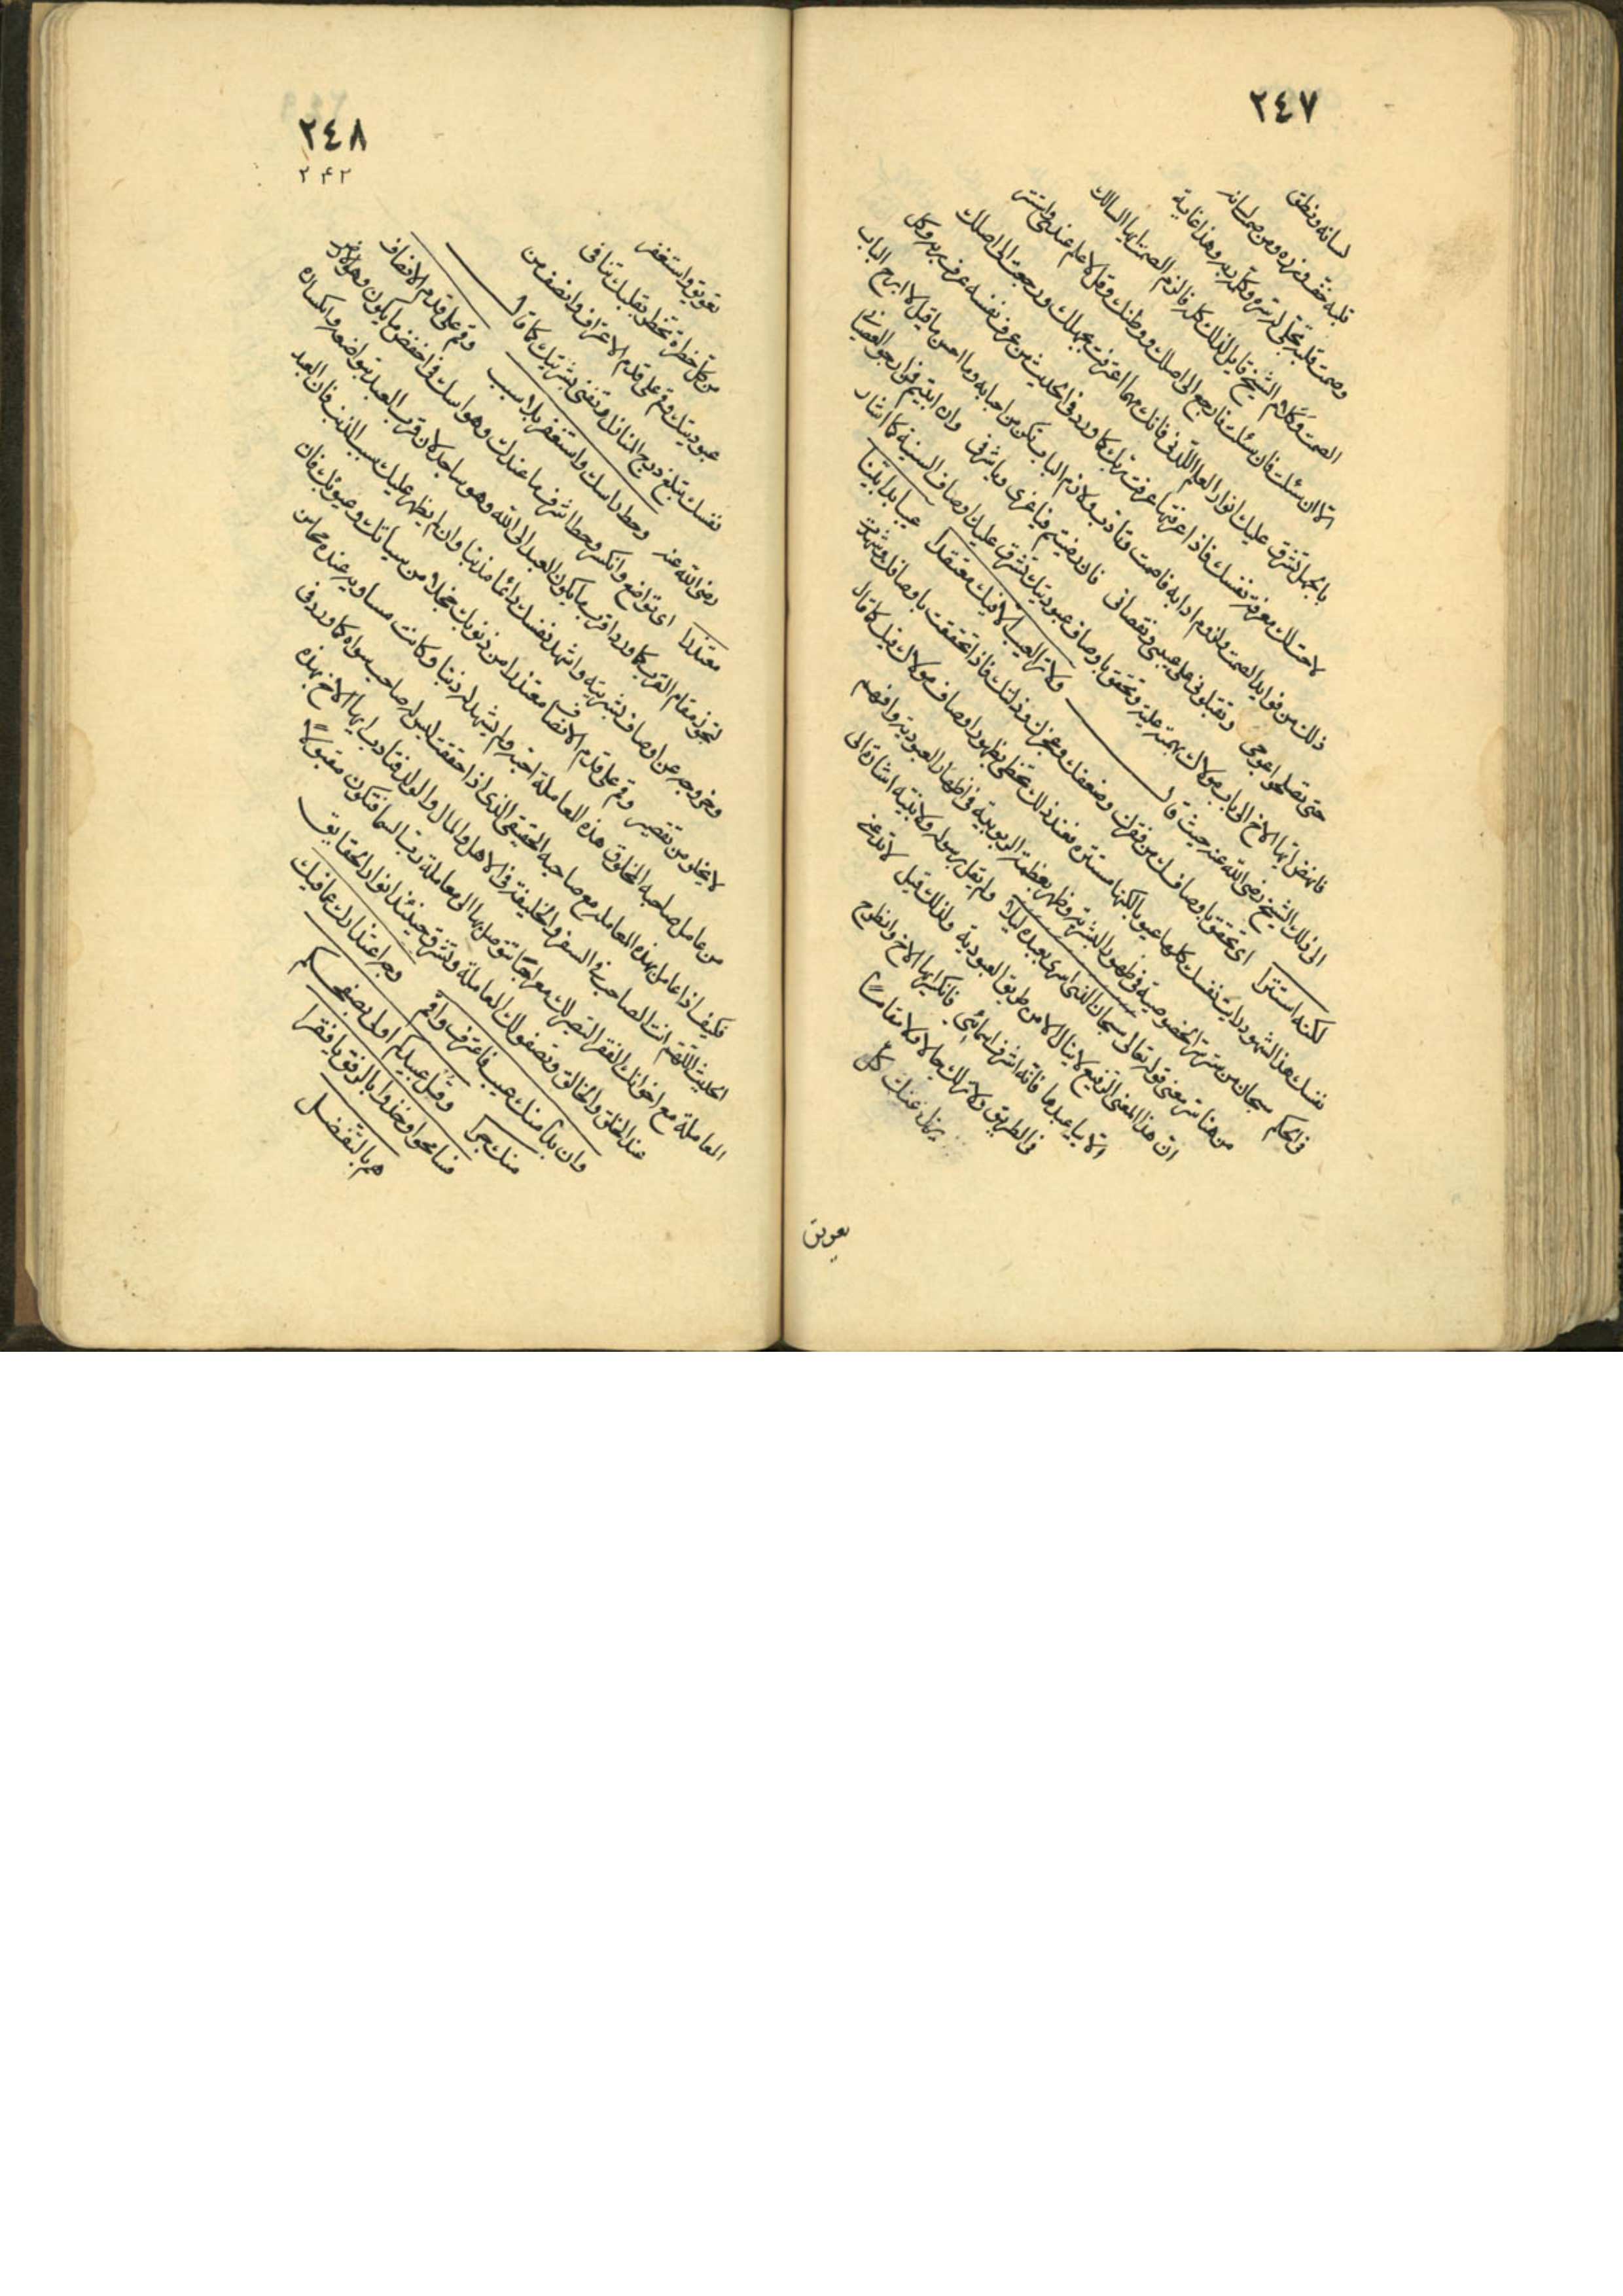 ٢٤٧
لسانه ونطق
قلبه خف وزره ومن صمت لسانه
وصمت قلبه تجلى له سره وكلمه ربه وهذا غاية
الصمت وكلام الشيخ قابل لذلك كله فالزم الصمت ايها السالك
الا ان سئلت فان سئلت فارجع الى اصلك ووطنك وقل لا علم عندي واستتر
بالجهل تشرق عليك انوار العلم اللدني فانك مهما اعترفت بجهلك ورجعت الى اصلك
لاحت لك معرفة نفسك فاذا عرفتها عرفت ربك كما ورد في الحديث من عرف نفسه عرف ربه وكل
ذلك من فوايد الصمت ولزوم ادابه فاصمت وتأدب ولازم الباب تكن من احبابه وما احسن ما قيل لا ابرح الباب
حتى تصلحوا عوجي وتقبلوني على عيبي ونقصاني فان رضيتم فيا عزي ويا شرفي وان ابيتم فمن ارجو لعصياني
فانهض ايها الاخ الى باب مولاك بهمة علية وتحقق باوصاف عبوديتك تشرق عليك اوصافه السنية كما اشار
الى ذلك الشيخ رضي الله عنه حيث قال ولا تر العيب الا فيك معتقدا عيبا بدا بينا
لكنه استترا اي تحقق باوصافك من فقرك وضعفك وعجزك وذلتك فاذا تحققت باوصافك وشهدت
نفسك هذا الشهود رايت نفسك كلها عيوبا لكنها مستترة فعند ذلك تحظى بظهور اوصاف مولاك فيك كما قال
في الحكم سبحان من ستر سر الخصوصية في ظهور البشرية وظهر بعظمة الربوبية في اظهار العبودية وافهم
من هنا سر معنى قوله تعالى سبحان الذي اسرى بعبده ليلا ولم يقل برسوله ولا بنبيه اشارة الى
ان هذا المعنى الرفيع لا ينال الا من طريق العبودية ولذلك قيل لا تدعني
الا بيا عبدها فانه اشرف اسمائي فانكسر ايها الاخ وانطرح
في الطريق ولا تر لك حالا ولا مقاما
يزل عنك كل
تعويق
٢٤٨
٢٤٢
تعويق واستغفر
من كل خطرة تخطر بقلبك تنافي
عبوديتك وقم على قدم الاعتراف وانصف من
نفسك تبلغ درج المنازل وتفنى بشريتك كما قال
رضي الله عنه وحط راسك واستغفر بلا سبب وقم على قدم الانصاف
معتذرا اي تواضع وانكسر وحط اشرف ما عندك وهو راسك في اخفض ما يكون وهو الارض
لتحوز مقام القرب كما ورد اقرب ما يكون العبد الى الله وهو ساجد لان قرب العبد بتواضعه وانكساره
وخروجه عن اوصاف بشريته واشهد نفسك دائما مذنبا وان لم يظهر عليك سبب الذنب فان العبد
لا يخلو من تقصير وقم على قدم الانصاف معتذرا من ذنوبك خجلا من سياتك وعيوبك فان
من عامل صاحبه المخلوق هذه المعاملة احبه ولم يشهد له ذنبا وكانت مساويه عنده محاسن
فكيف اذا عامل بهذه المعامله مع صاحبه الحقيقي الذي اذا حققت ليس له صاحب سواه كما ورد في
الحديث اللهم انت الصاحب في السفر والخليفة في الاهل والمال والولد فتادب ايها الاخ بهذه
المعاملة مع اخوانك الفقرا لتصير لك معراجا تتوصل بها الى معاملة رب السما فتكون مقبولا
عند الخلق والخالق وتصفو لك المعاملة وتشرق حينئذ انوار الحقايق
وان بدا منك عيب فاعترف واقم وجه اعتذارك عما فيك
منك جرا وقل عبيدكم اولى بصفحكم
فسامحوا وخذوا بالرفق يا فقرا
هم بالتفضل